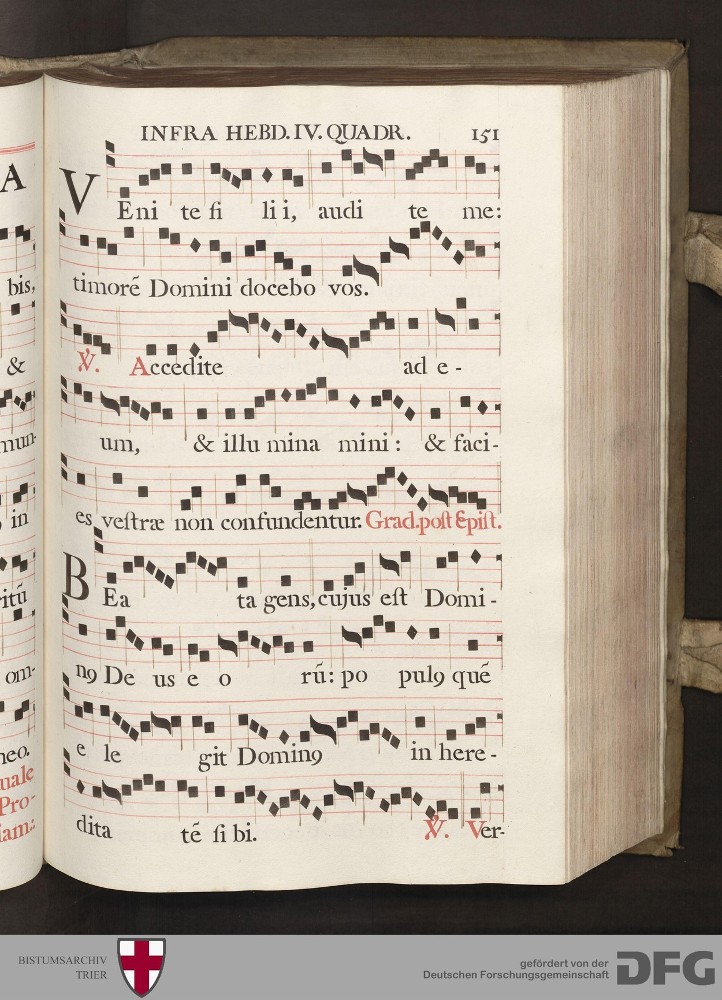 A
bis,
&
mun-
in
ritũ
om-
neo.
uale
Pro-
iam:
INFRA HEBD. IV. QUADR. 151
VEni te fi lii, audi te me:
timorẽ Domini docebo vos.
℣. Accedite ad e-
um, & illu mina mini: & faci-
es veſtræ non confundentur. Grad. poſt Epiſt.
BEa ta gens, cujus eſt Domi-
nꝰ De us e o rũ: po pulꝰ quẽ
e le git Dominꝰ in here-
dita tẽ ſi bi. ℣. Ver-
BISTUMSARCHIV
TRIER
gefördert von der
Deutschen Forschungsgemeinschaft
DFG